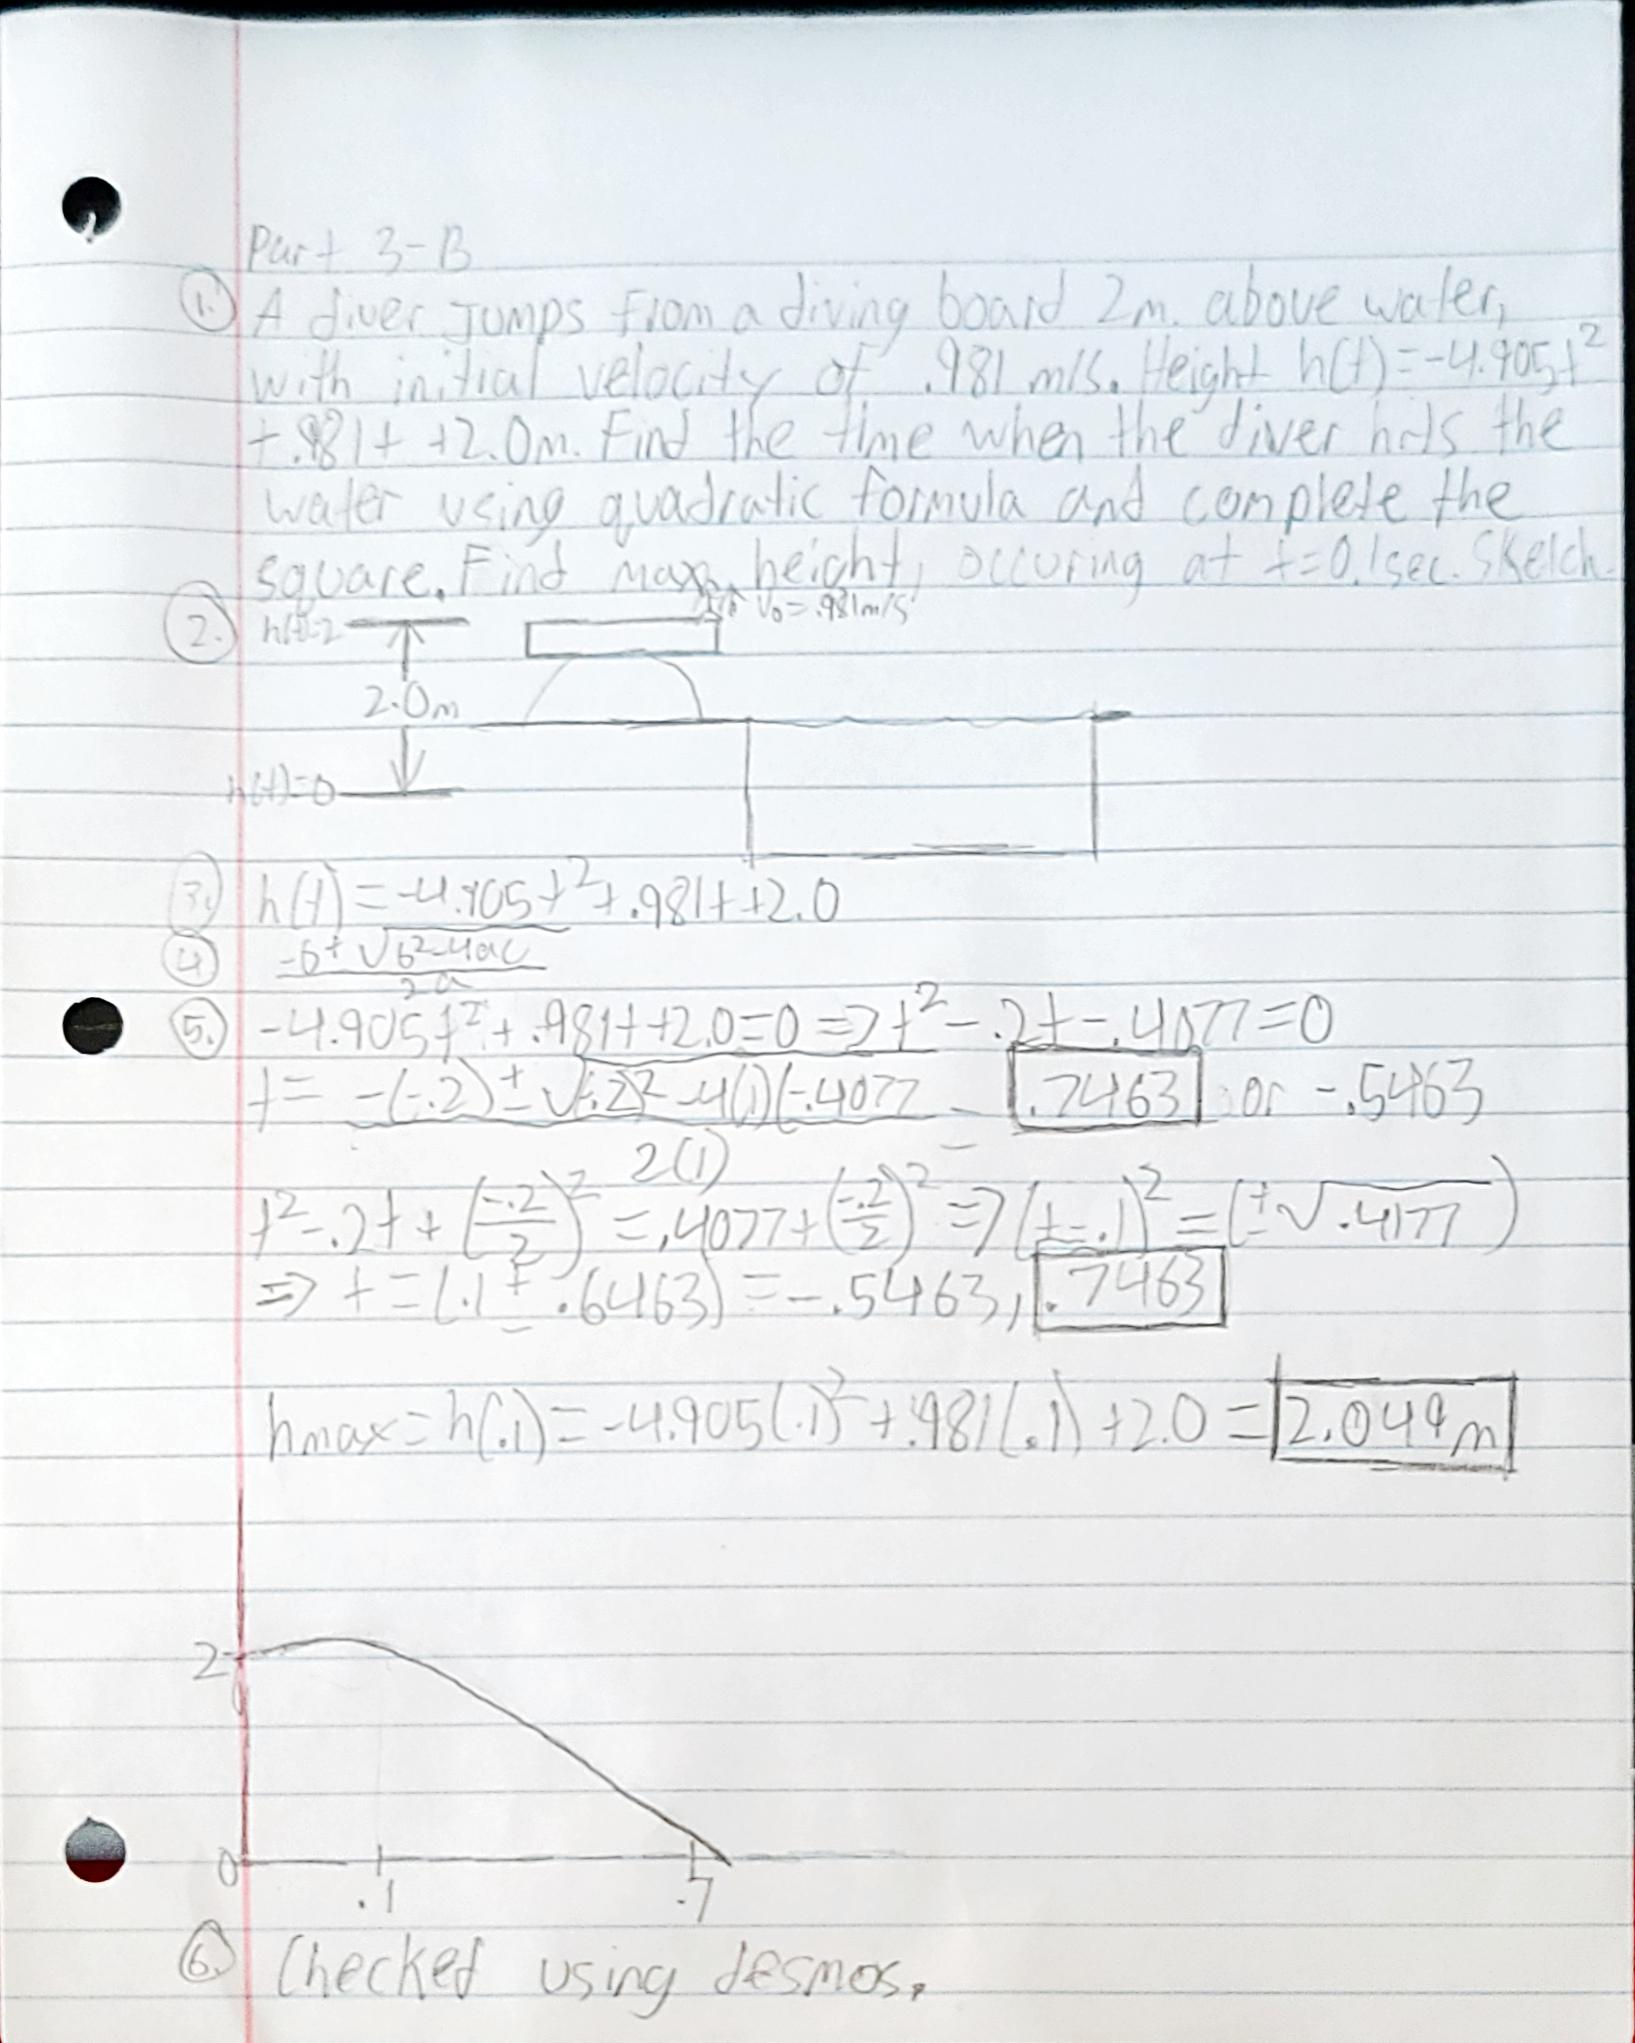 Part 3-B
1. A diver jumps from a diving board 2m. above water,
with initial velocity of .981 m/s. Height h(t)=-4.905t²
+.981t+2.0m. Find the time when the diver hits the
water using quadratic formula and complete the
square. Find max height, occuring at t=0.1sec. Sketch.
2. h(t)=2 V₀=.981m/s
2.0m
h(t)=0
3. h(t)=-4.905t²+.981t+2.0
4 -b±√b²-4ac
2a
5. -4.905t²+.981t+2.0=0 => t²-.2t-.4077=0
t= -(-.2)±√(-.2)²-4(1)(-.4077 = .7463 or -.5463
2(1)
t²-.2t+(-.2/2)²=.4077+(-.2/2)² => (t-.1)²=(±√.4177)
=> t=(.1±.6463)=-.5463, .7463
hmax=h(.1)=-4.905(.1)²+.981(.1)+2.0=2.049m
2
0
.1 .7
6. Checked using desmos.